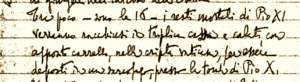 Tra poco – sono le 16 – i resti mortali di Pio XI
verranno racchiusi in triplice cassa e calati, con
apposito carrello, nella cripta vaticana, per essere
deposti in un sarcofago, presso la tomba di Pio X.